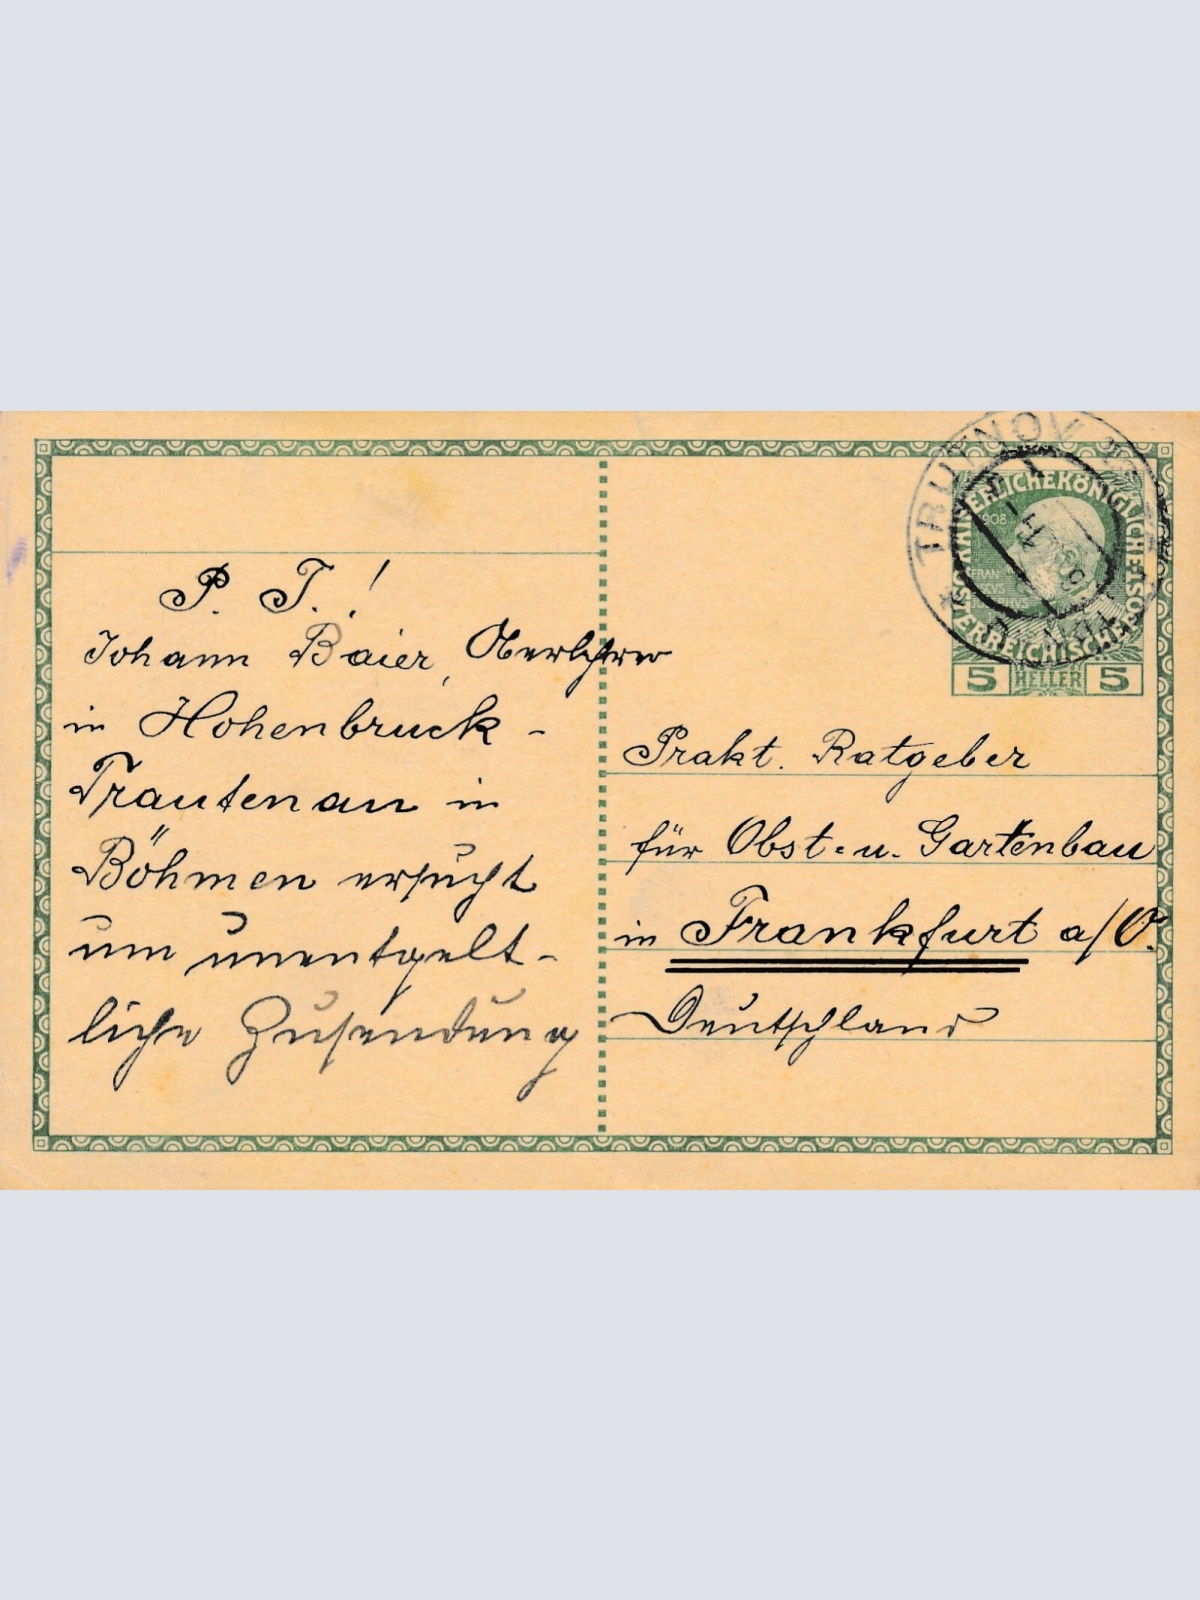 P. T.!
Johann Baier, Oberlehrer
in Hohenbruck-
Trautenau in
Böhmen ersucht
um unentgelt-
liche Zusendung
TRUTNOV
KAISERLICHEKÖNIGLICHE ÖSTERREICHISCHE
1908
5 HELLER 5
Prakt. Ratgeber
für Obst- u. Gartenbau
in Frankfurt a/O.
Deutschland